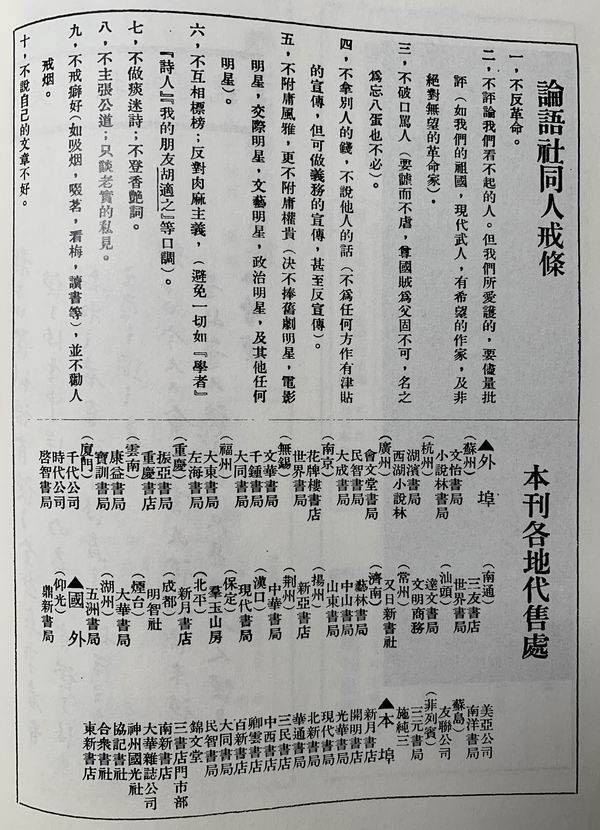 論語社同人戒條
一，不反革命。
二，不評論我們看不起的人。但我們所愛護的，要儘量批
評（如我們的祖國，現代武人，有希望的作家，及非
絕對無望的革命家）。
三，不破口罵人（要謔而不虐，尊國賊為父固不可，名之
為忘八蛋也不必）。
四，不拿別人的錢，不說他人的話（不為任何方作有津貼
的宣傳，但可做義務的宣傳，甚至反宣傳）。
五，不附庸風雅，更不附庸權貴（决不捧舊劇明星，電影
明星，交際明星，文藝明星，政治明星，及其他任何
明星）。
六，不互相標榜；反對肉麻主義，（避免一切如『學者』
『詩人』『我的朋友胡適之』等口調）。
七，不做痰迷詩；不登香艷詞。
八，不主張公道；只談老實的私見。
九，不戒癖好（如吸烟，啜茗，看梅，讀書等），並不勸人
戒烟。
十，不說自己的文章不好。
本刊各地代售處
▲外埠
（蘇州）
文怡書局
小說林書局
（杭州）
湖濱書局
西湖小說林
（廣州）
會文堂書局
民智書局
大成書局
（南京）
花牌樓書店
世界書局
（無錫）
文華書局
千鍾書局
大同書局
（福州）
大東書局
左海書局
（重慶）
振亞書局
重慶書店
（雲南）
康益書局
寶訓書局
（廈門）
千代公司
時代公司
啓智書局
（南通）
三友書店
世界書局
（汕頭）
達文書局
文明商務
（常州）
又日新書社
（濟南）
藝林書局
中山書局
山東書局
（揚州）
新亞書店
（荆州）
中華書局
（漢口）
現代書局
（保定）
羣玉山房
（北平）
新月書店
（成都）
明智社
（煙台）
大華書局
（湖州）
五洲書局
▲國外
（仰光）
鼎新書局
美亞公司
南洋書局
（蘇島）
友聯公司
（非列賓）
三元書局
施純三
▲本埠
新月書店
開明書店
光華書局
現代書局
北新書局
華通書局
三民書店
中西書局
卿雲書店
百新書店
大同書局
民智書局
錦文堂
三書店門市部
南新書店
大華雜誌公司
神州國光社
協記書社
合衆書社
東新書店